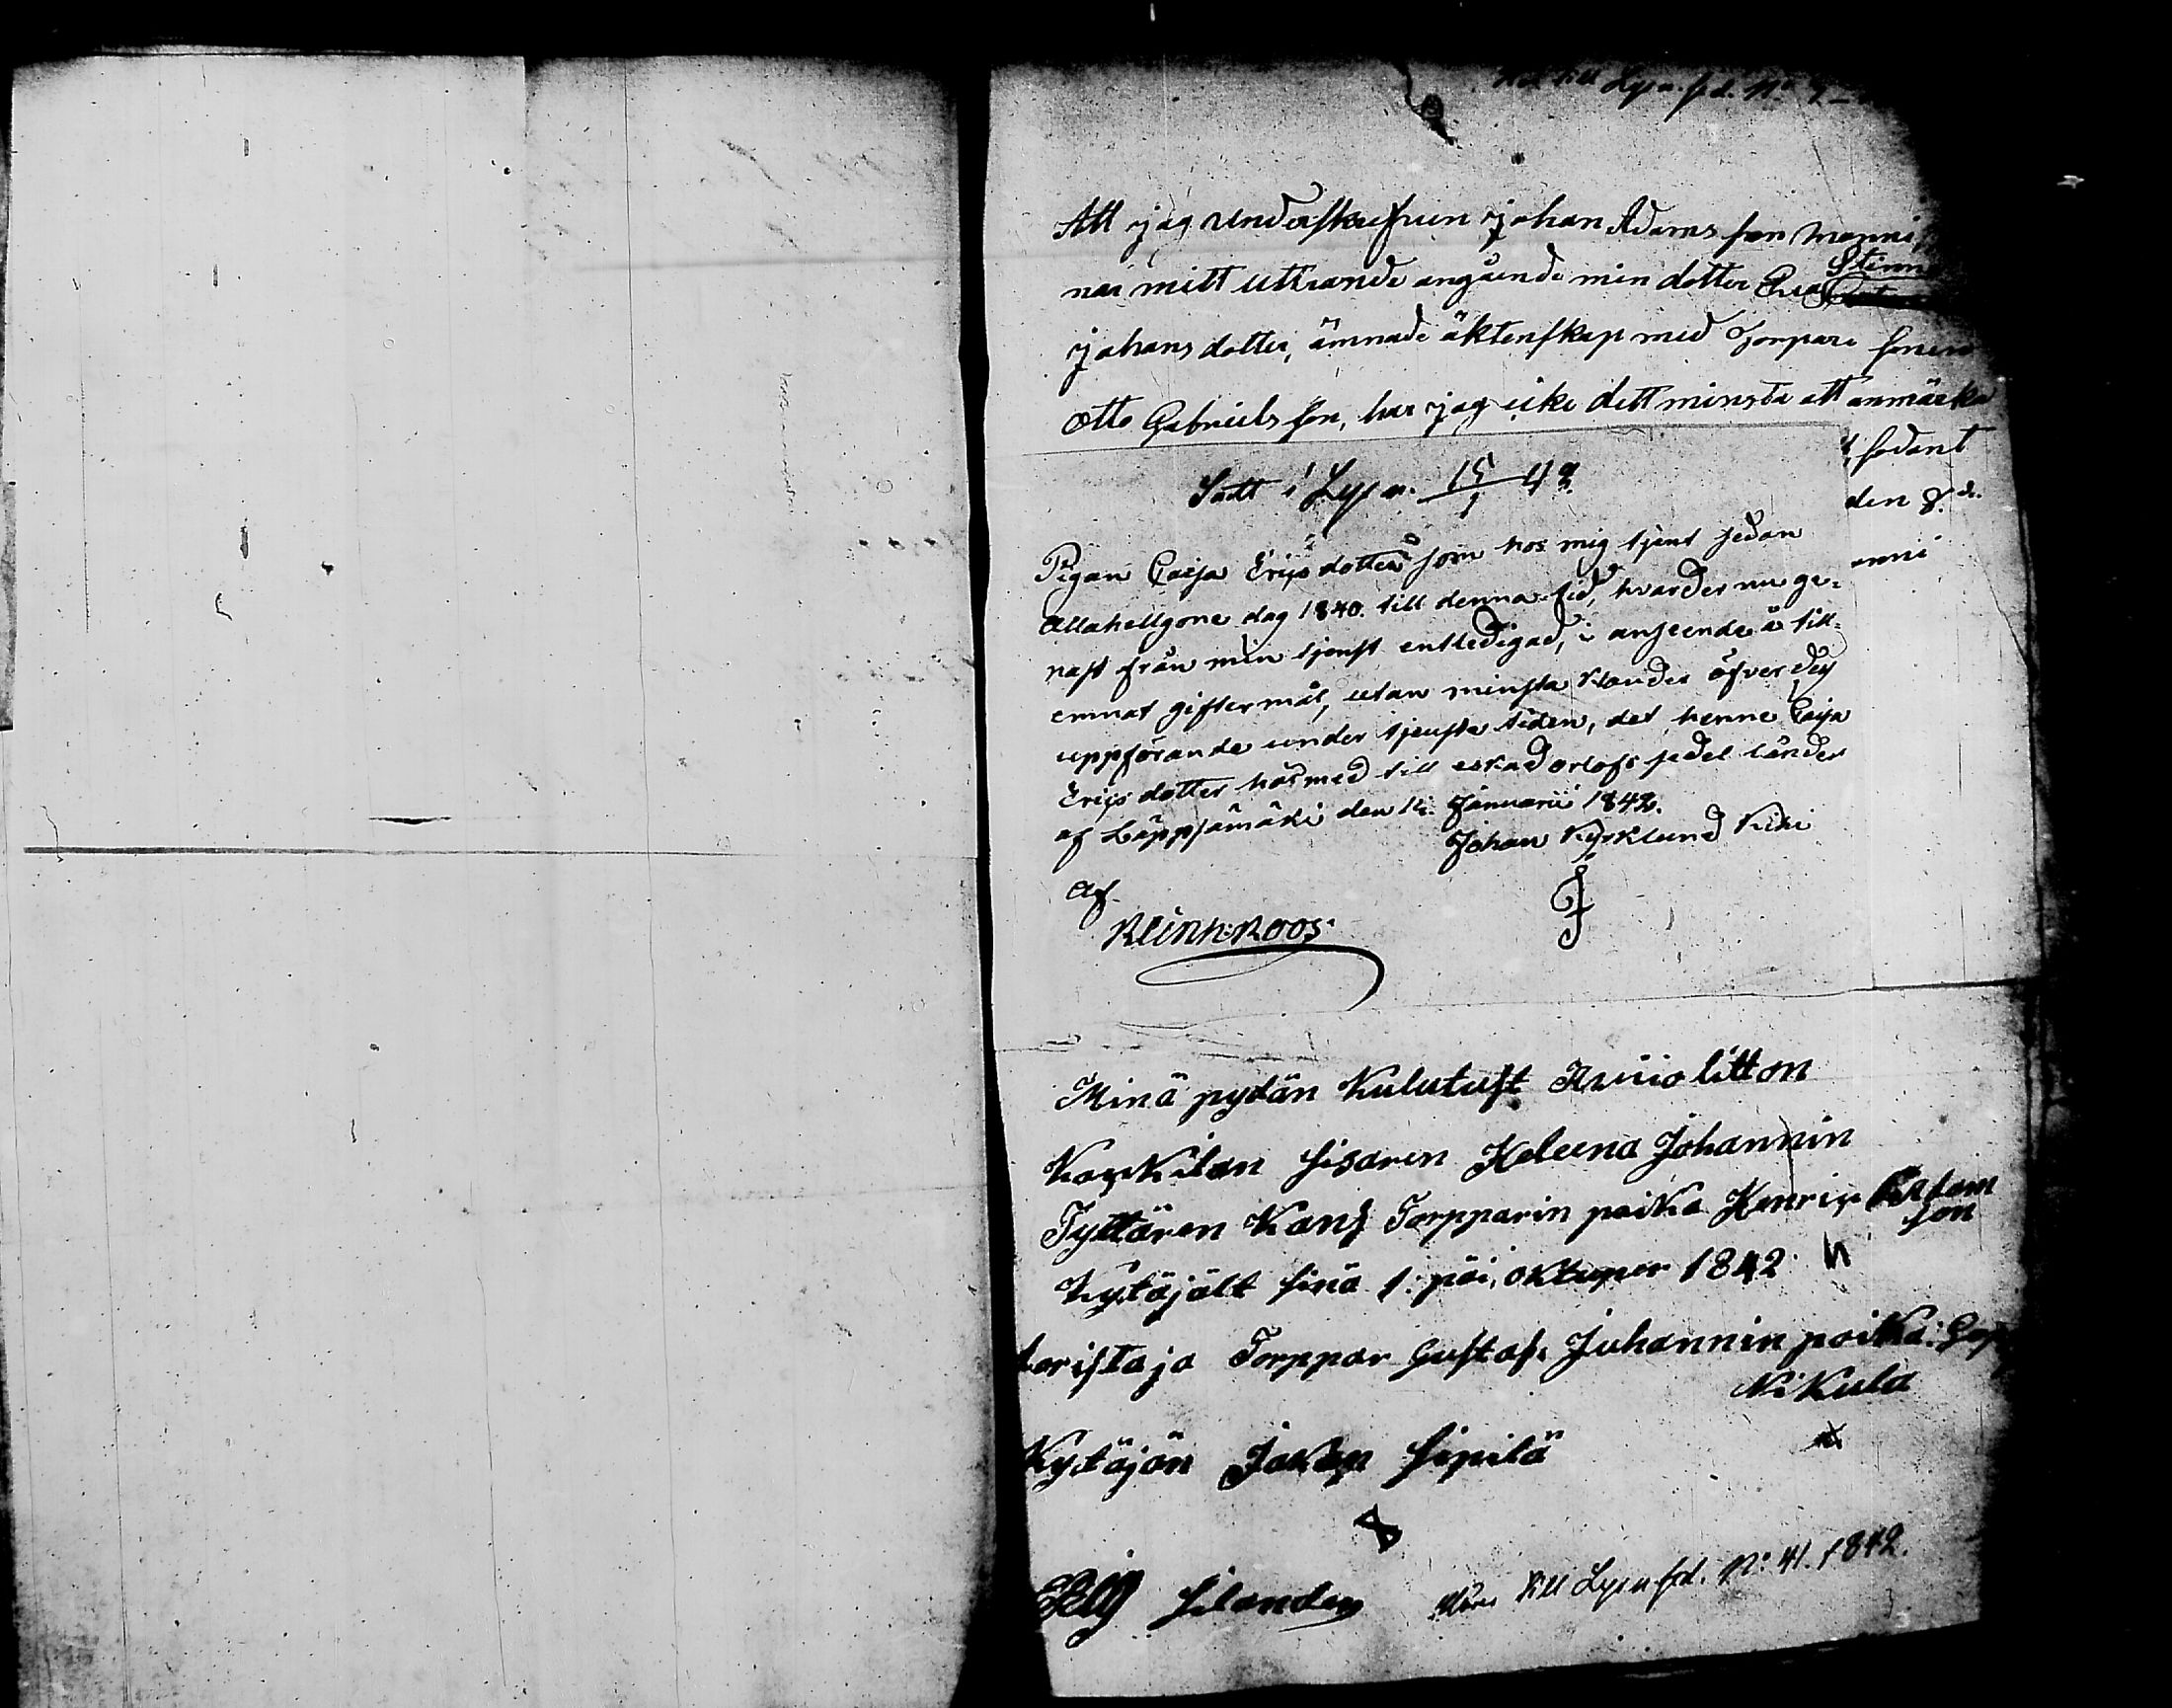 till Lysn. sed. No
Att jag underskrefven Johan Adams son Manni
när mitt uttrande angående min dotter Eva Stinna
Johans dotter, ämnade äktenskap med Torpare sonen
Otto Gabriels son, har jag icke dett minsta att anmärka
sådant
den 8de.
anni
Sedt i Lysn. 15/1 42
Pigan Caisa Erijs dotter som hos mig tjent sedan
Allahellgone dag 1840. till denna tid, hvarder nu ge-
nast från min tjenst entledigad, i anseende å till-
ernat giftermål, utan minsta klander öfver dej
uppförande under tjenste tiden, det henne Caisa
Erijs dotter härmed till eskad orlofs sedel länder
af Läppjämäki den 14. Januarii 1842.
Johan Kyrklund Kiki
Af.
Klinkroos.
Minä pydän Kulutust Avio litton
Koskilan sisaren Heleena Johannin
Tyttären Kans Torpparin poika Henrip Adam
son
Kytäjält sinä 1: päi, oktuper 1842
toristaja Torppar Gustaf. Juhannin poika:
Nikula
Kytäjän Jakop Sipilä
Elij Silander
Hörer till Lysn sed. No: 41. 1842.